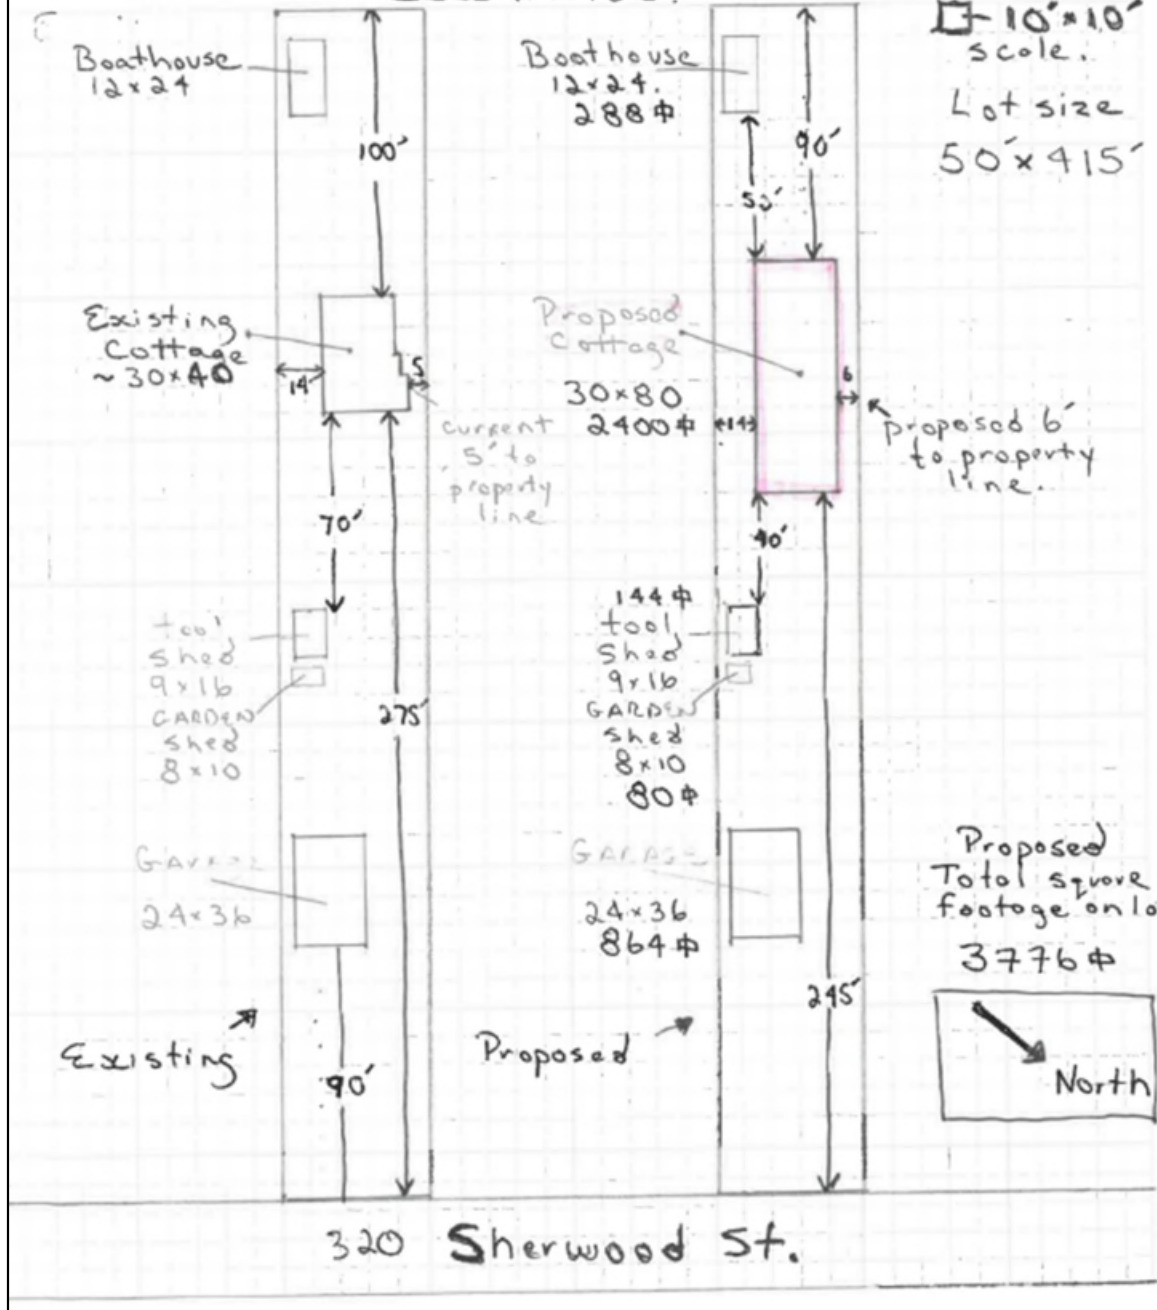 Boathouse
12x24
100'
Existing
Cottage
~ 30x40
14'
5
current
5' to
property
line
70'
tool
shed
9x16
GARDEN
shed
8x10
275'
24x36
Existing
90'
Boathouse
12x24.
288⌽
90'
Proposed
Cottage
30x80
2400⌽
14
6
proposed 6'
to property
line.
40'
144⌽
tool
shed
9x16
GARDEN
shed
8x10
80⌽
GARAGE
24x36
864⌽
245'
Proposed
10'x10'
scale.
Lot size
50'x415'
Proposed
Total square
footage on
3776⌽
North
320 Sherwood St.